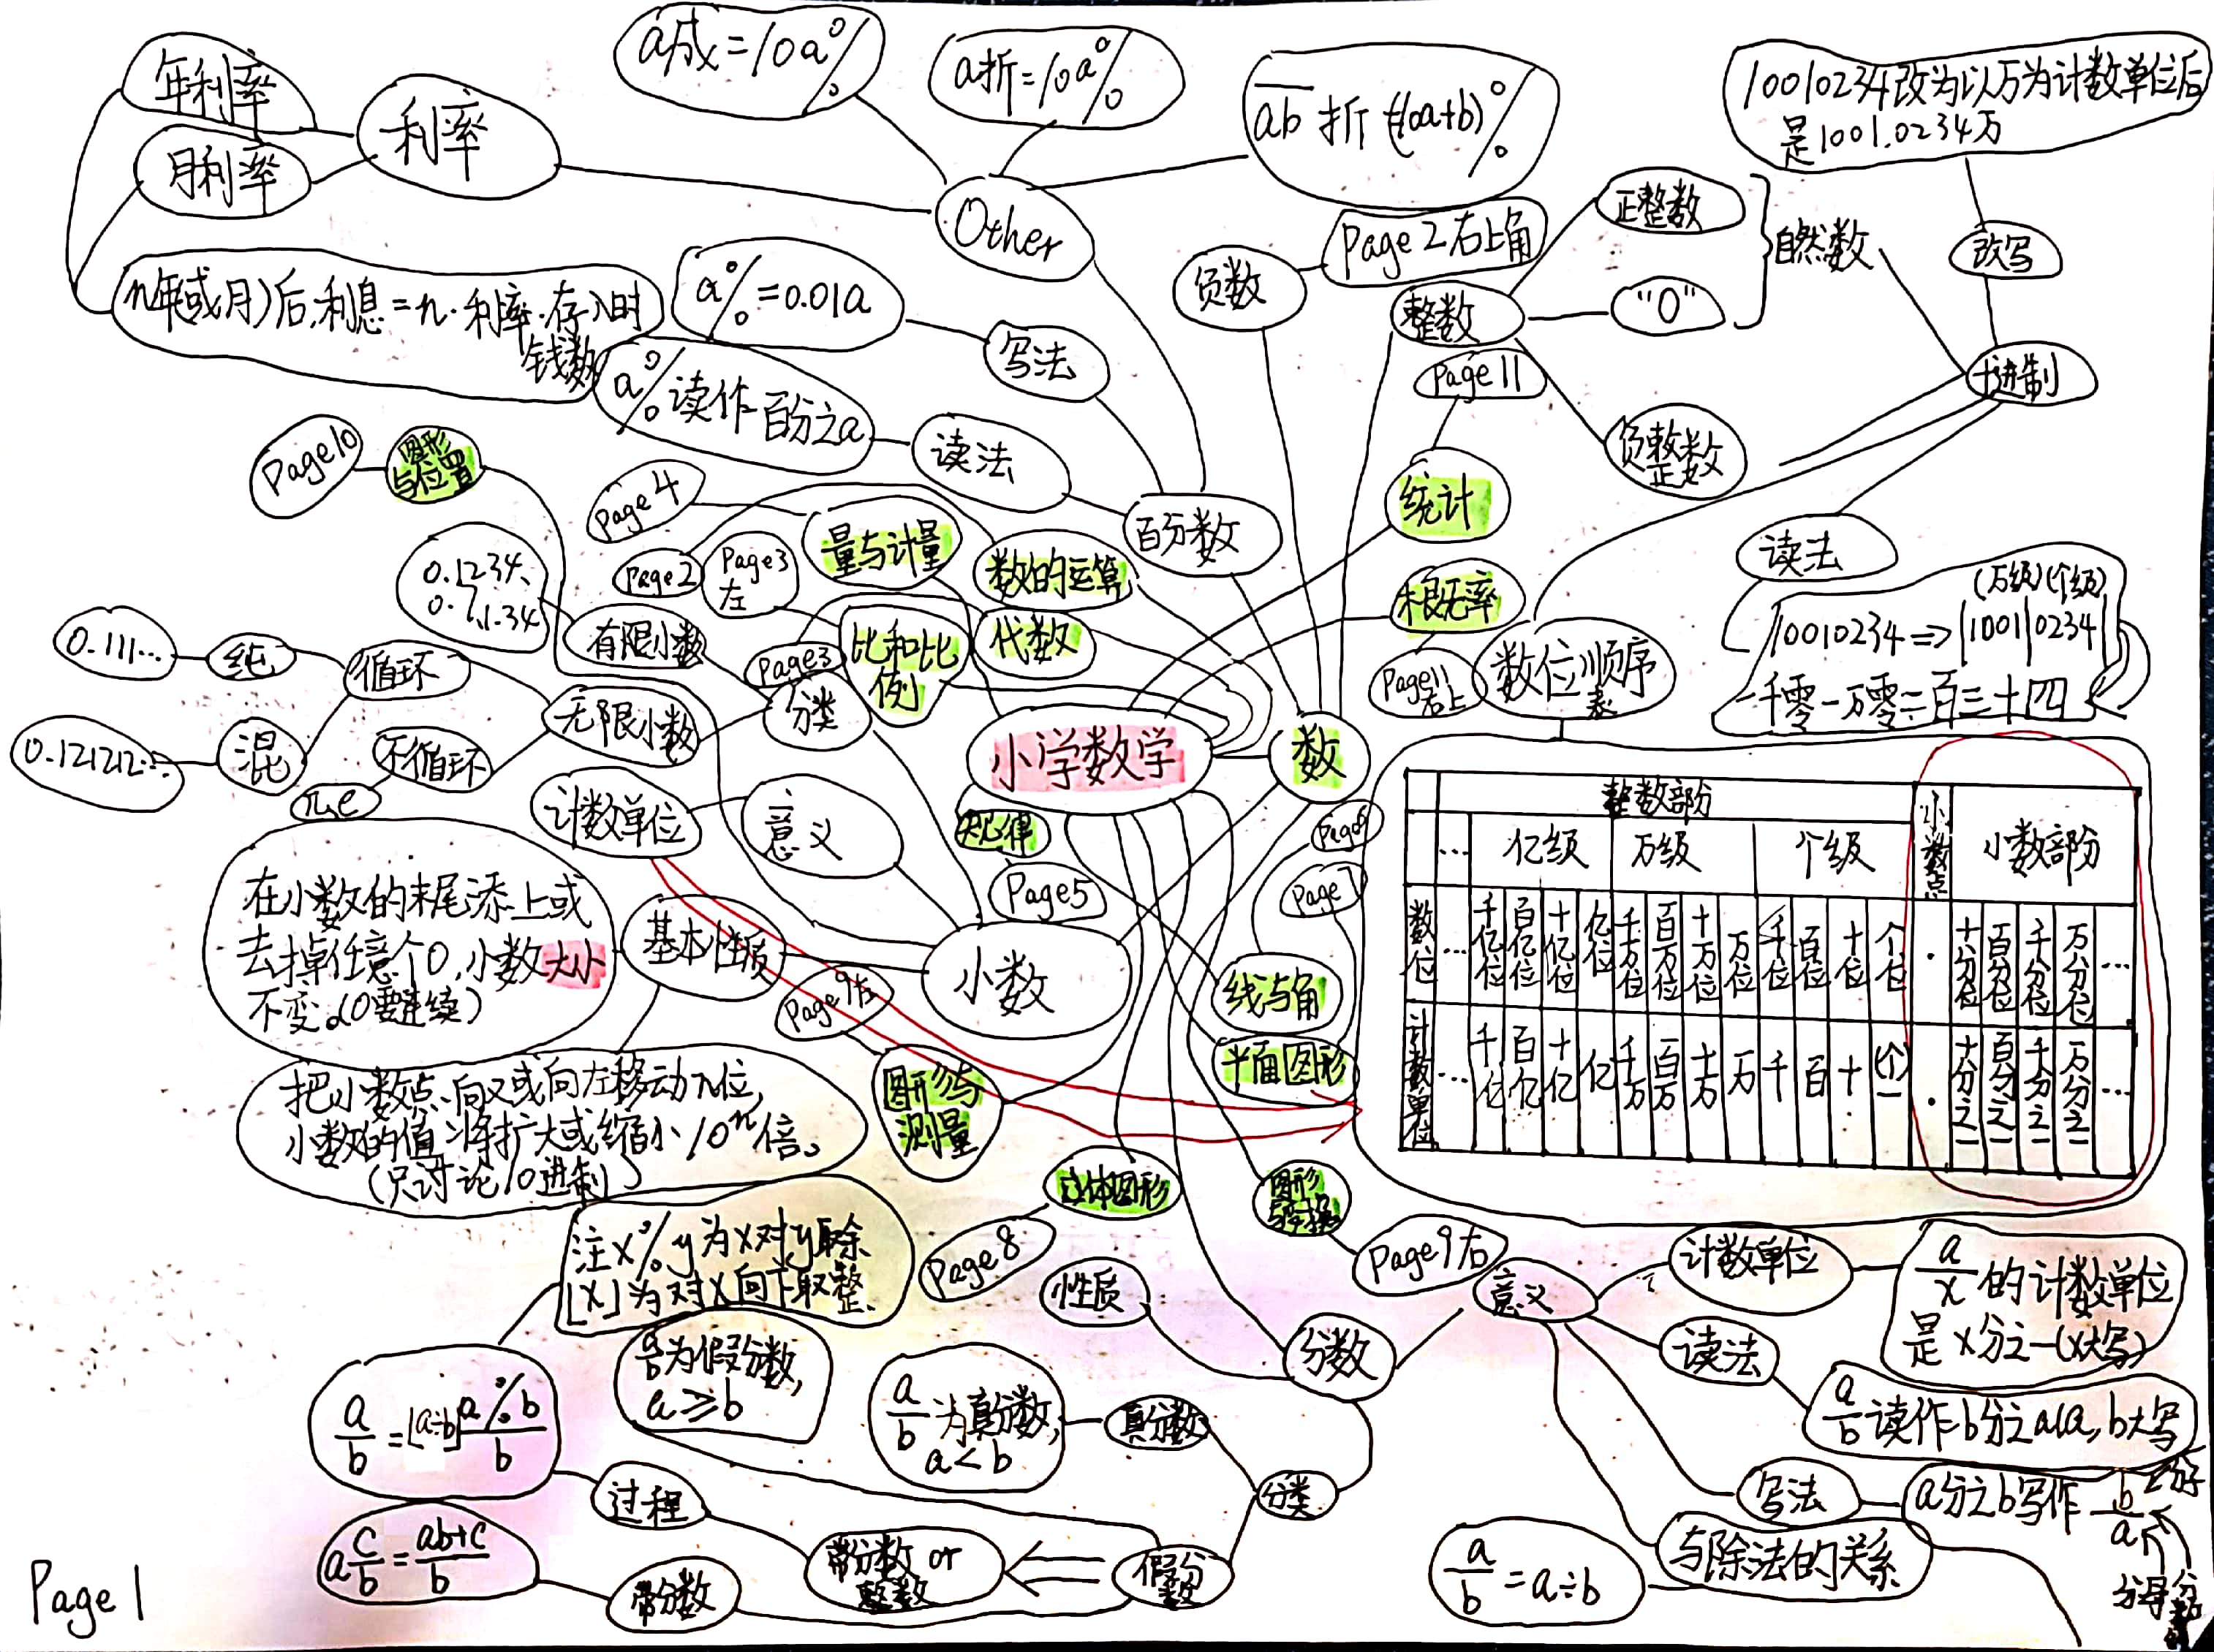 a成=10a%
a折=10a%
ab折=(10a+b)%
10010234改为以万为计数单位后
是1001.0234万
年利率
月利率
利率
Other
Page 2右上角
正整数
自然数
改写
负数
"0"
整数
n年(或月)后,利息=n·利率·存入时
钱数
a%=0.01a
写法
Page 11
十进制
a%读作百分之a
读法
负整数
Page 10
图形
与位置
统计
Page 4
量与计量
数的运算
百分数
读法
Page 2
Page 3
左
0.1234、
有限小数
比和比
例
代数
Page 3
Page 11
右上
数位顺序
表
(万级)(个级)
10010234=>|1001|0234|
一千零一万零二百三十四
0.111…
纯
循环
无限小数
分类
小学数学
数
0.121212…
混
不循环
π、e
计数单位
意义
规律
Page 5
Page 7
在小数的末尾添上或
去掉任意个0,小数大小
不变。(0要连续)
基本性质
Page 9左
小数
线与角
平面图形
整数部分
小数点
小数部分
… 亿级 万级 个级
数位 … 千亿位 百亿位 十亿位 亿位 千万位 百万位 十万位 万位 千位 百位 十位 个位 · 十分位 百分位 千分位 万分位 …
计数单位 … 千亿 百亿 十亿 亿 千万 百万 十万 万 千 百 十 一(个) · 十分之一 百分之一 千分之一 万分之一 …
把小数点向右或向左移动n位,
小数的值将扩大或缩小10ⁿ倍。
(只讨论10进制)
图形与
测量
立体图形
Page 8
Page 9右
注x%y为x对y取余
⌊x⌋为对x向下取整
性质
分数
意义
计数单位
a/x的计数单位
是x分之一(x大写)
读法
a/b读作b分之a(a,b大写
a/b为假分数,
a≥b
a/b为真分数,
a<b
真分数
分类
写法
a分之b写作b/a
分子
分母
分数线
与除法的关系
a/b=a÷b
a/b=⌊a÷b⌋ a%b/b
过程
带分数 or
整数
假分数
a c/b=ab+c/b
带分数
Page 1